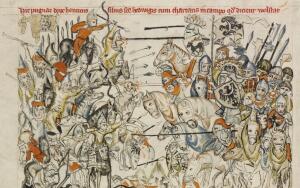 Hic pugnat dux filius sce hedwigis cum thartaris in campo qd dicitur wolstat